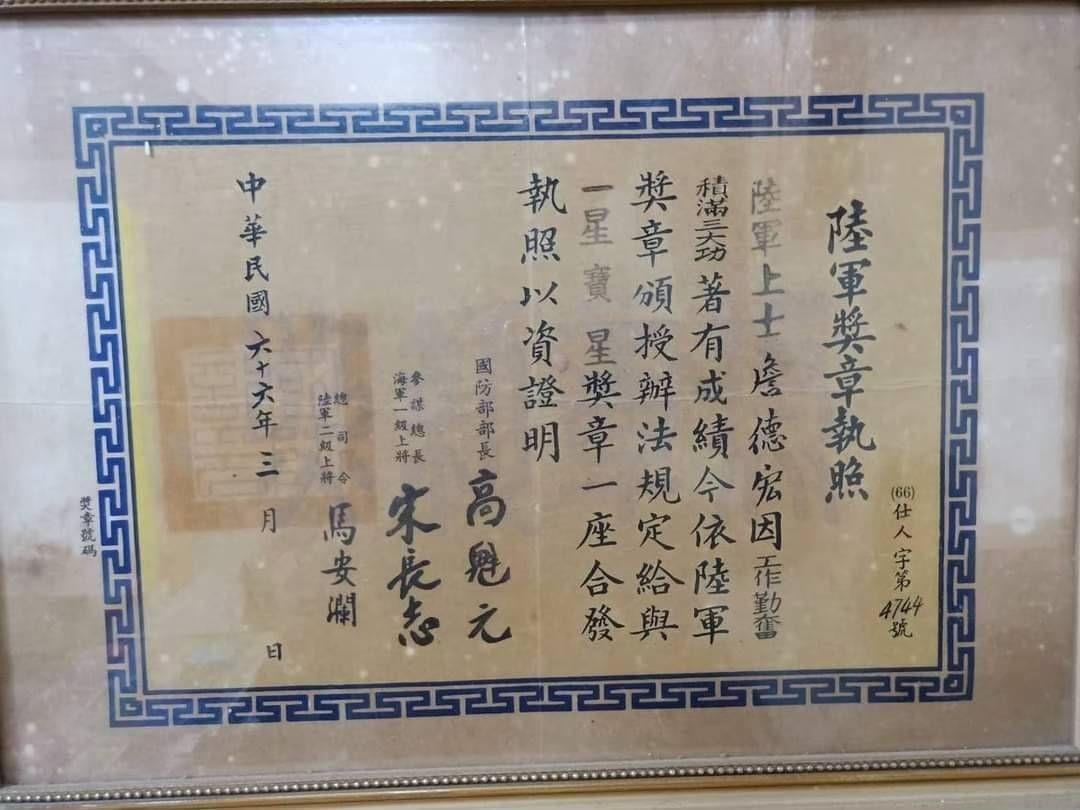 陸軍獎章執照
(66)仕人字第4744號
陸軍上士詹德宏因工作勤奮
積滿三大功著有成績今依陸軍
獎章頒授辦法規定給與
一星寶星獎章一座合發
執照以資證明
國防部部長高魁元
參謀總長
海軍一級上將宋長志
總司令
陸軍二級上將馬安瀾
中華民國六十六年三月 日
獎章號碼